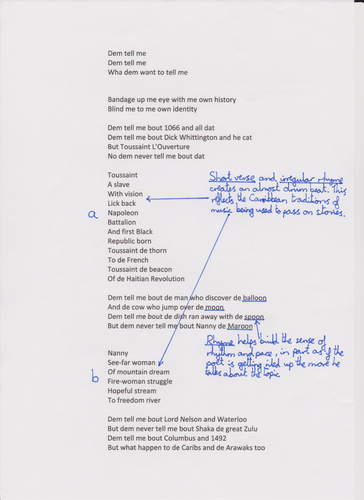 Dem tell me
Dem tell me
Wha dem want to tell me
Bandage up me eye with me own history
Blind me to me own identity
Dem tell me bout 1066 and all dat
Dem tell me bout Dick Whittington and he cat
But Toussaint L'Ouverture
No dem never tell me bout dat
Toussaint
A slave
With vision
Lick back
Napoleon
Battalion
And first Black
Republic born
Toussaint de thorn
To de French
Toussaint de beacon
Of de Haitian Revolution
a
Short verse and irregular rhyme
creates an almost drum beat. This
reflects, the Caribbean traditions of
music being used to pass on stories.
Dem tell me bout de man who discover de balloon
And de cow who jump over de moon
Dem tell me bout de dish ran away with de spoon
But dem never tell me bout Nanny de Maroon
Rhyme helps build the sense of
rhythm and pace, in part as if the
poet is getting up the more he
talks about the topic
Nanny
See-far woman
Of mountain dream
Fire-woman struggle
Hopeful stream
To freedom river
b
Dem tell me bout Lord Nelson and Waterloo
But dem never tell me bout Shaka de great Zulu
Dem tell me bout Columbus and 1492
But what happen to de Caribs and de Arawaks too